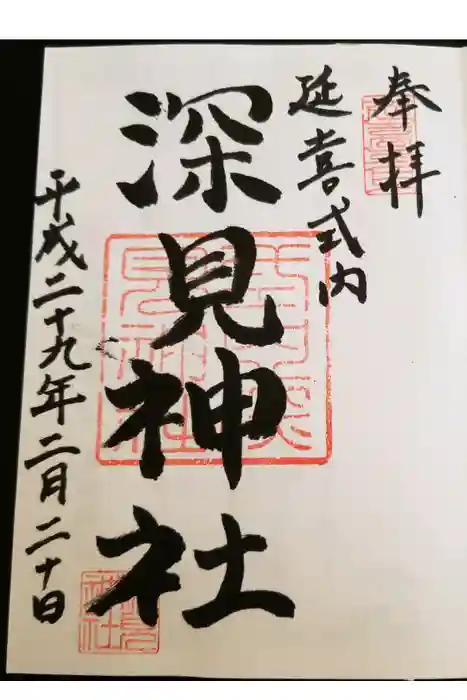 奉拝
延喜式内
深見神社
平成二十九年二月二十日